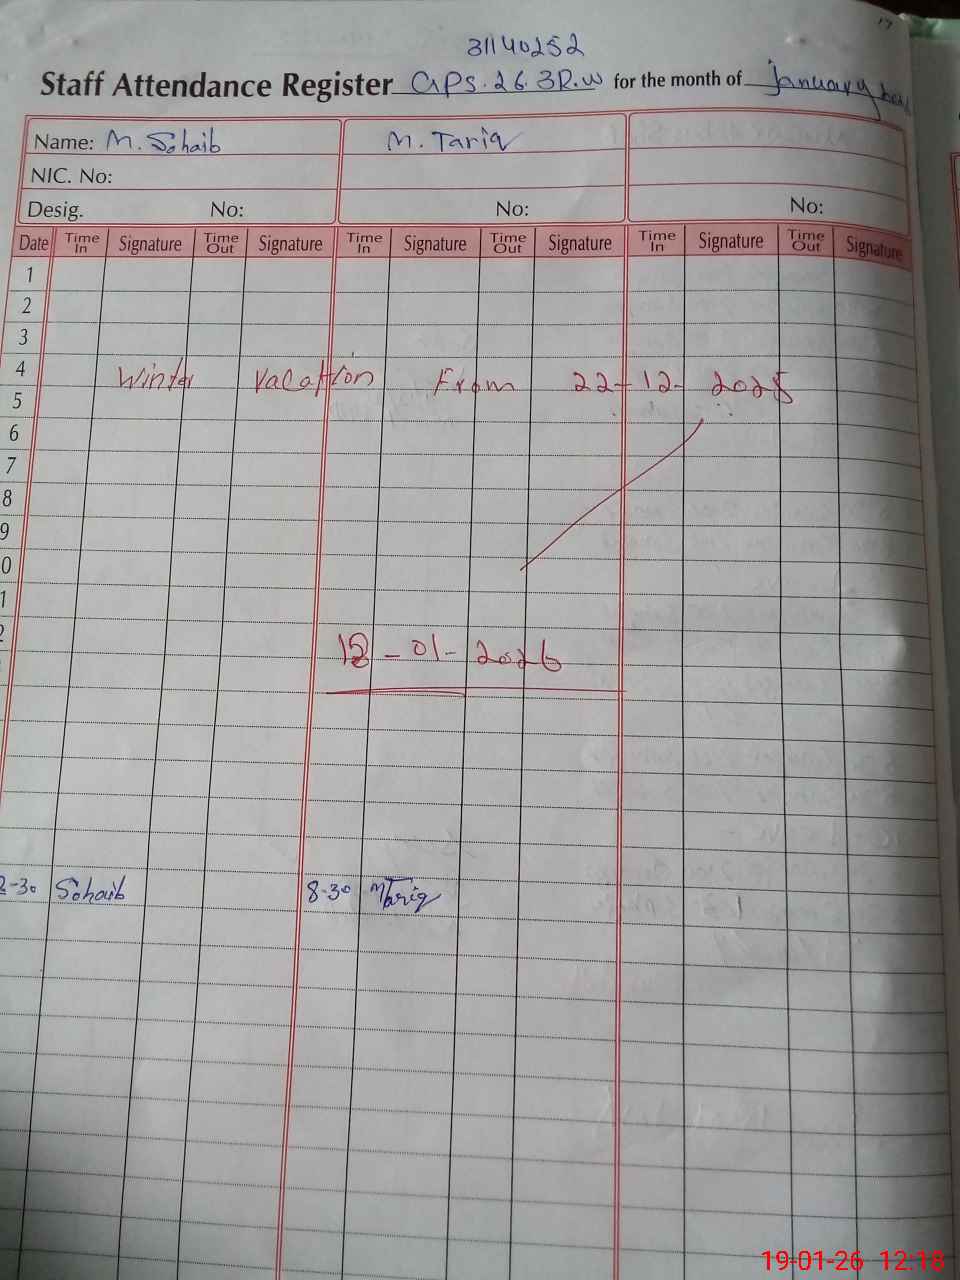 17
31140252
Staff Attendance Register GPS.26.3R.W for the month of January
Name: M. Sohaib M. Tariq
NIC. No:
Desig. No: No: No:
Date Time In Signature Time Out Signature Time In Signature Time Out Signature Time In Signature Time Out Signature
1
2
3
4
Winter Vacation From 22-12-2025
5
6
7
8
9
0
1
2
-01-2026
-30 Sohaib 8-30 M Tariq
19-01-26 12:18